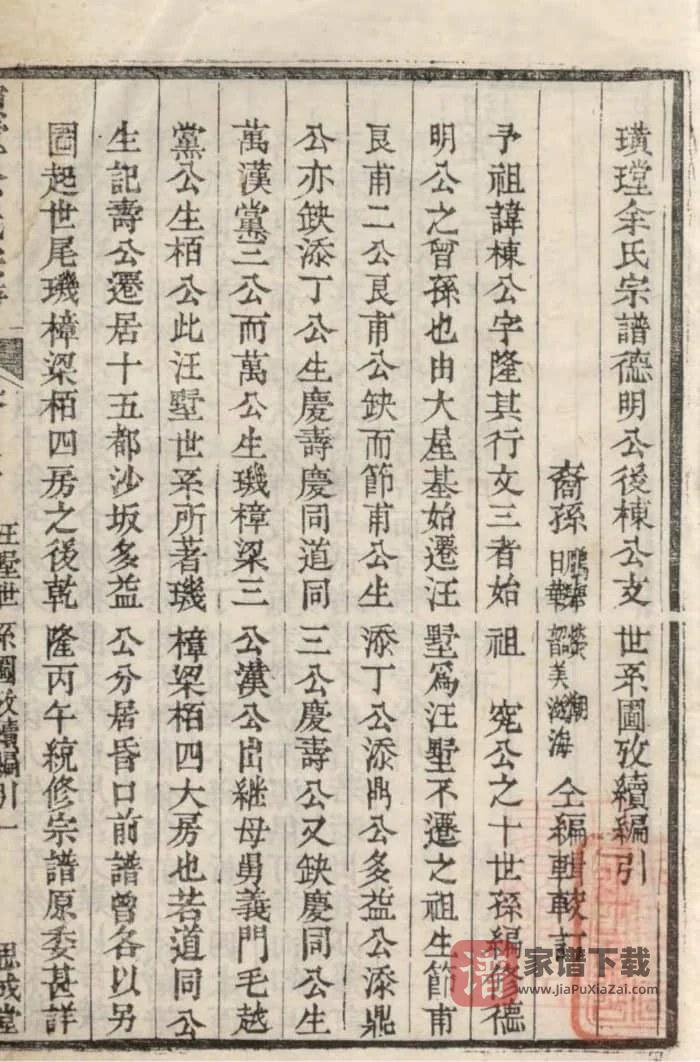 璜瑝余氏宗譜德明公後棟公支世系圖攷續編引
裔孫日華韶美海仝編輯較訂
予祖諱棟公字隆其行文三者始祖 寃公之十世孫編修德
明公之曾孫也由大屋基始遷汪墅爲汪墅不遷之祖生節甫
良甫二公良甫公缺而節甫公生添丁公添鼎公多益公添鼎
公亦缺添丁公生慶壽慶同道同三公慶壽公又缺慶同公生
萬漢黨三公而萬公生璣樟梁三公漢公出継母舅義門毛越
黨公生栢公此汪墅世系所著璣樟梁栢四大房也若道同公
生記壽公遷居十五都沙坂多益公分居昏口前譜曾各以另
圖起世尾璣樟梁栢四房之後乾隆丙午統修宗譜原委甚詳
汪墅世系圖攷續編引一
思成堂
家谱下载
www.JiaPuXiaZai.com